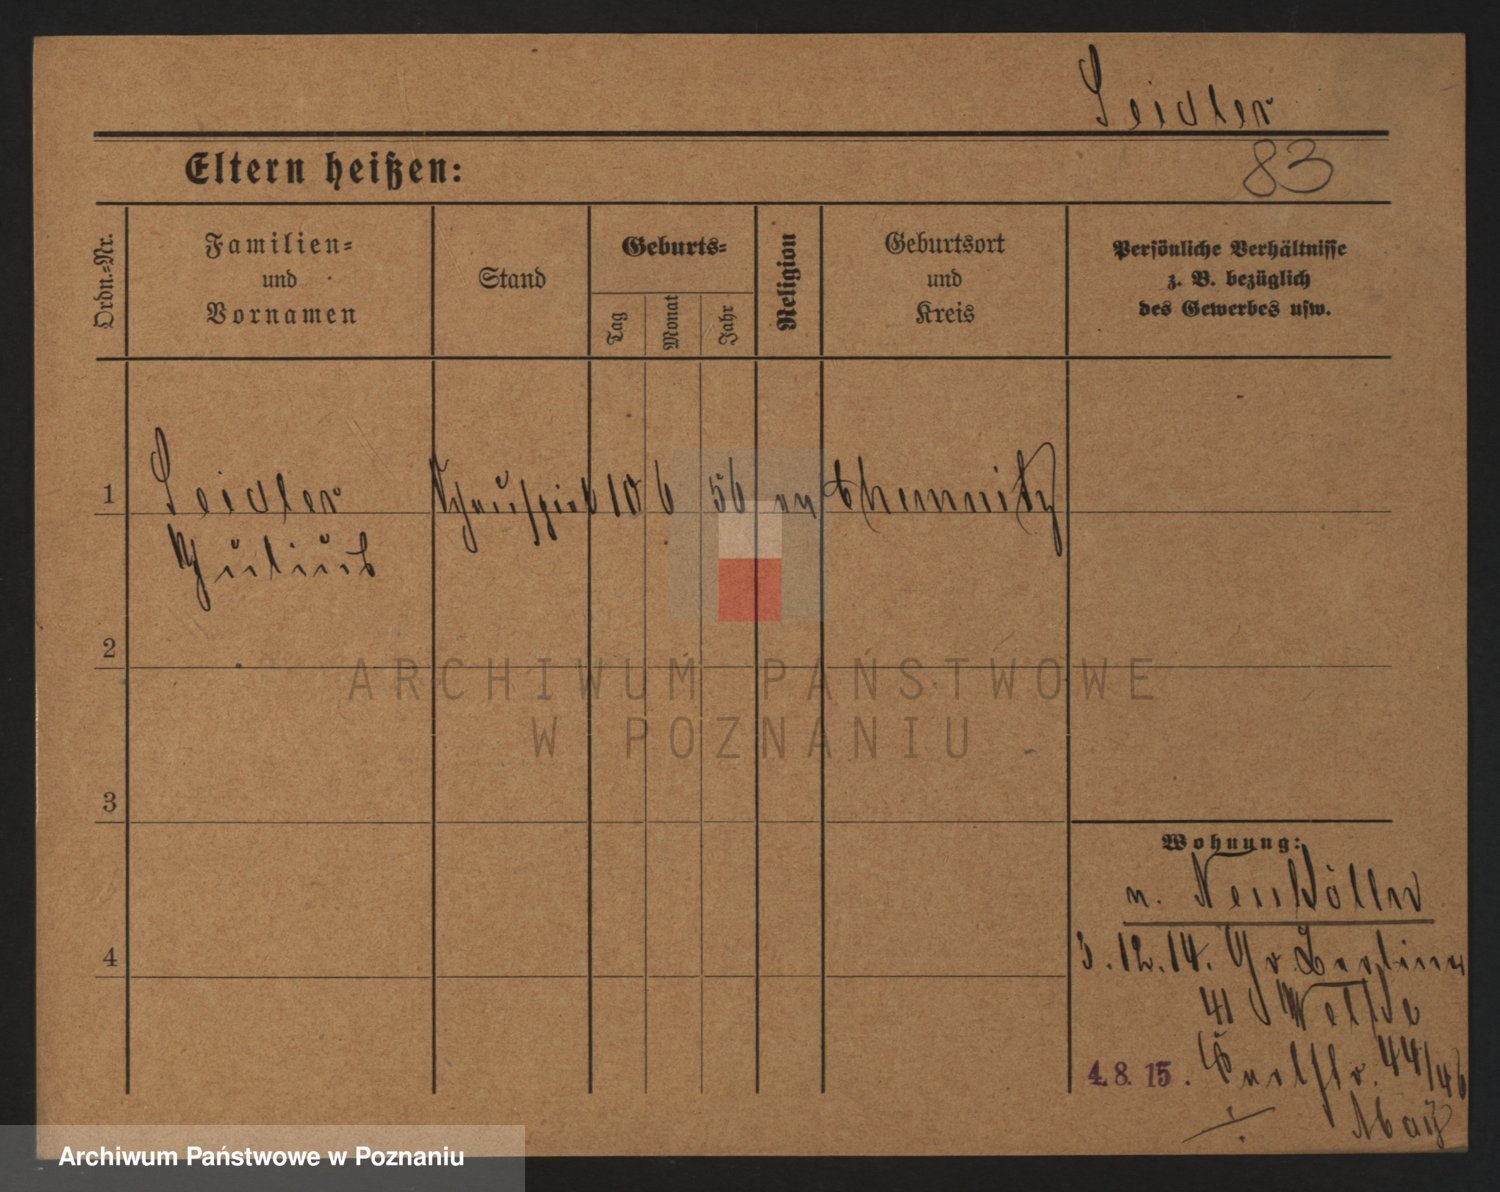 Seidler
83
Eltern heißen:
Ordn.-Nr.
Familien-
und
Vornamen
Stand
Geburts-
Tag
Monat
Jahr
Religion
Geburtsort
und
Kreis
Persönliche Verhältnisse
z. B. bezüglich
des Gewerbes usw.
1 Seidler Schauspiel 10 6 56 ev Chemnitz
Julius
2
3
4
Wohnung:
n. Neukölln
3.12.14. Gr Berliner
41
4.8.15. 44/46
ARCHIWUM PAŃSTWOWE
W POZNANIU
Archiwum Państwowe w Poznaniu